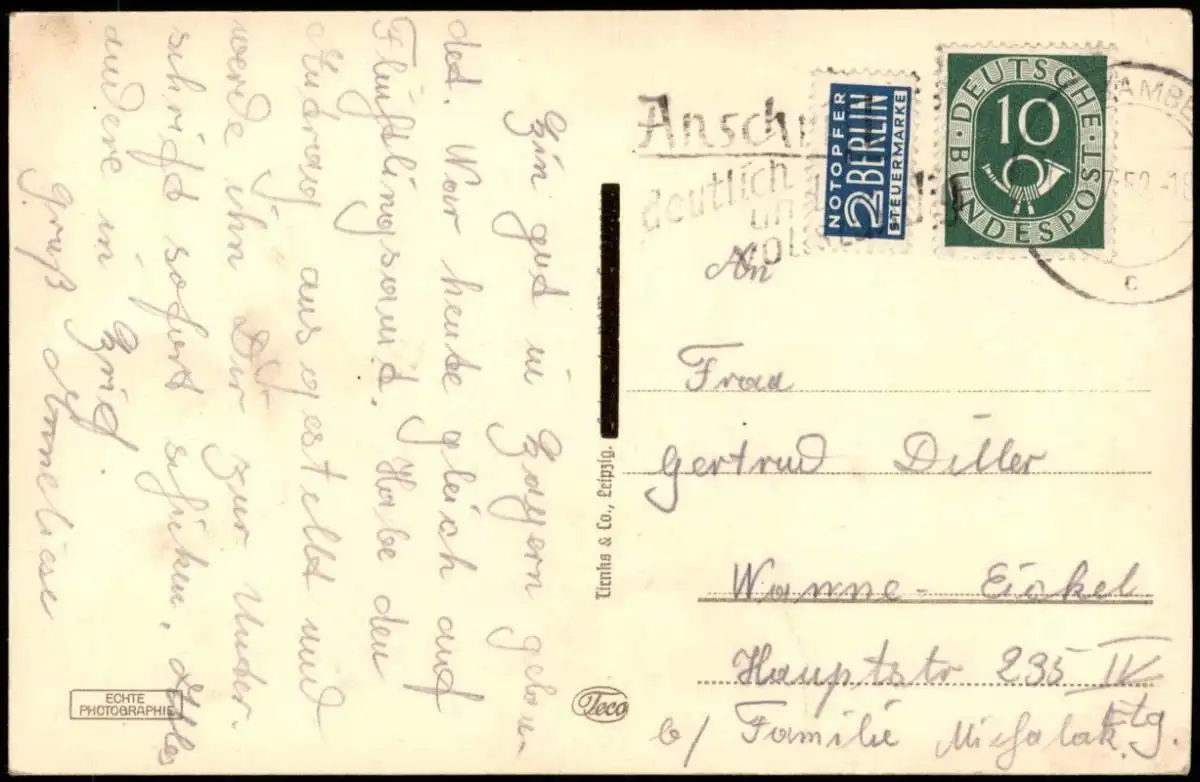 Bin gut in Bayern gelan-
det. War heute gleich auf
Flüchtlingsamt. Habe den
Andrag ausgestellt und
werde ihn Dir zur Under-
schrift sofort schiken. Alles
andere in Brief.
Gruß Anneliese
ECHTE
PHOTOGRAPHIE
Tienks & Co., Leipzig.
Teco
deutlich
un
NOTOPFER
2 BERLIN
STEUERMARKE
DEUTSCHE
10
BUNDESPOST
AMBE
c
An
Frau
Gertrud Diller
Wanne-Eickel
Hauptstr 235 IV
Etg.
b/ Familie Michalak